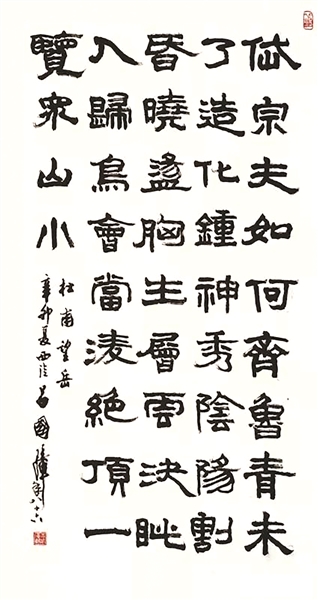 岱宗夫如何齊魯青未
了造化鍾神秀陰陽割
昏曉盪胸生層雲決眦
入歸鳥會當淩絕頂一
覽眾山小
杜甫望岳
辛卯夏西泠呂國璋年八十六